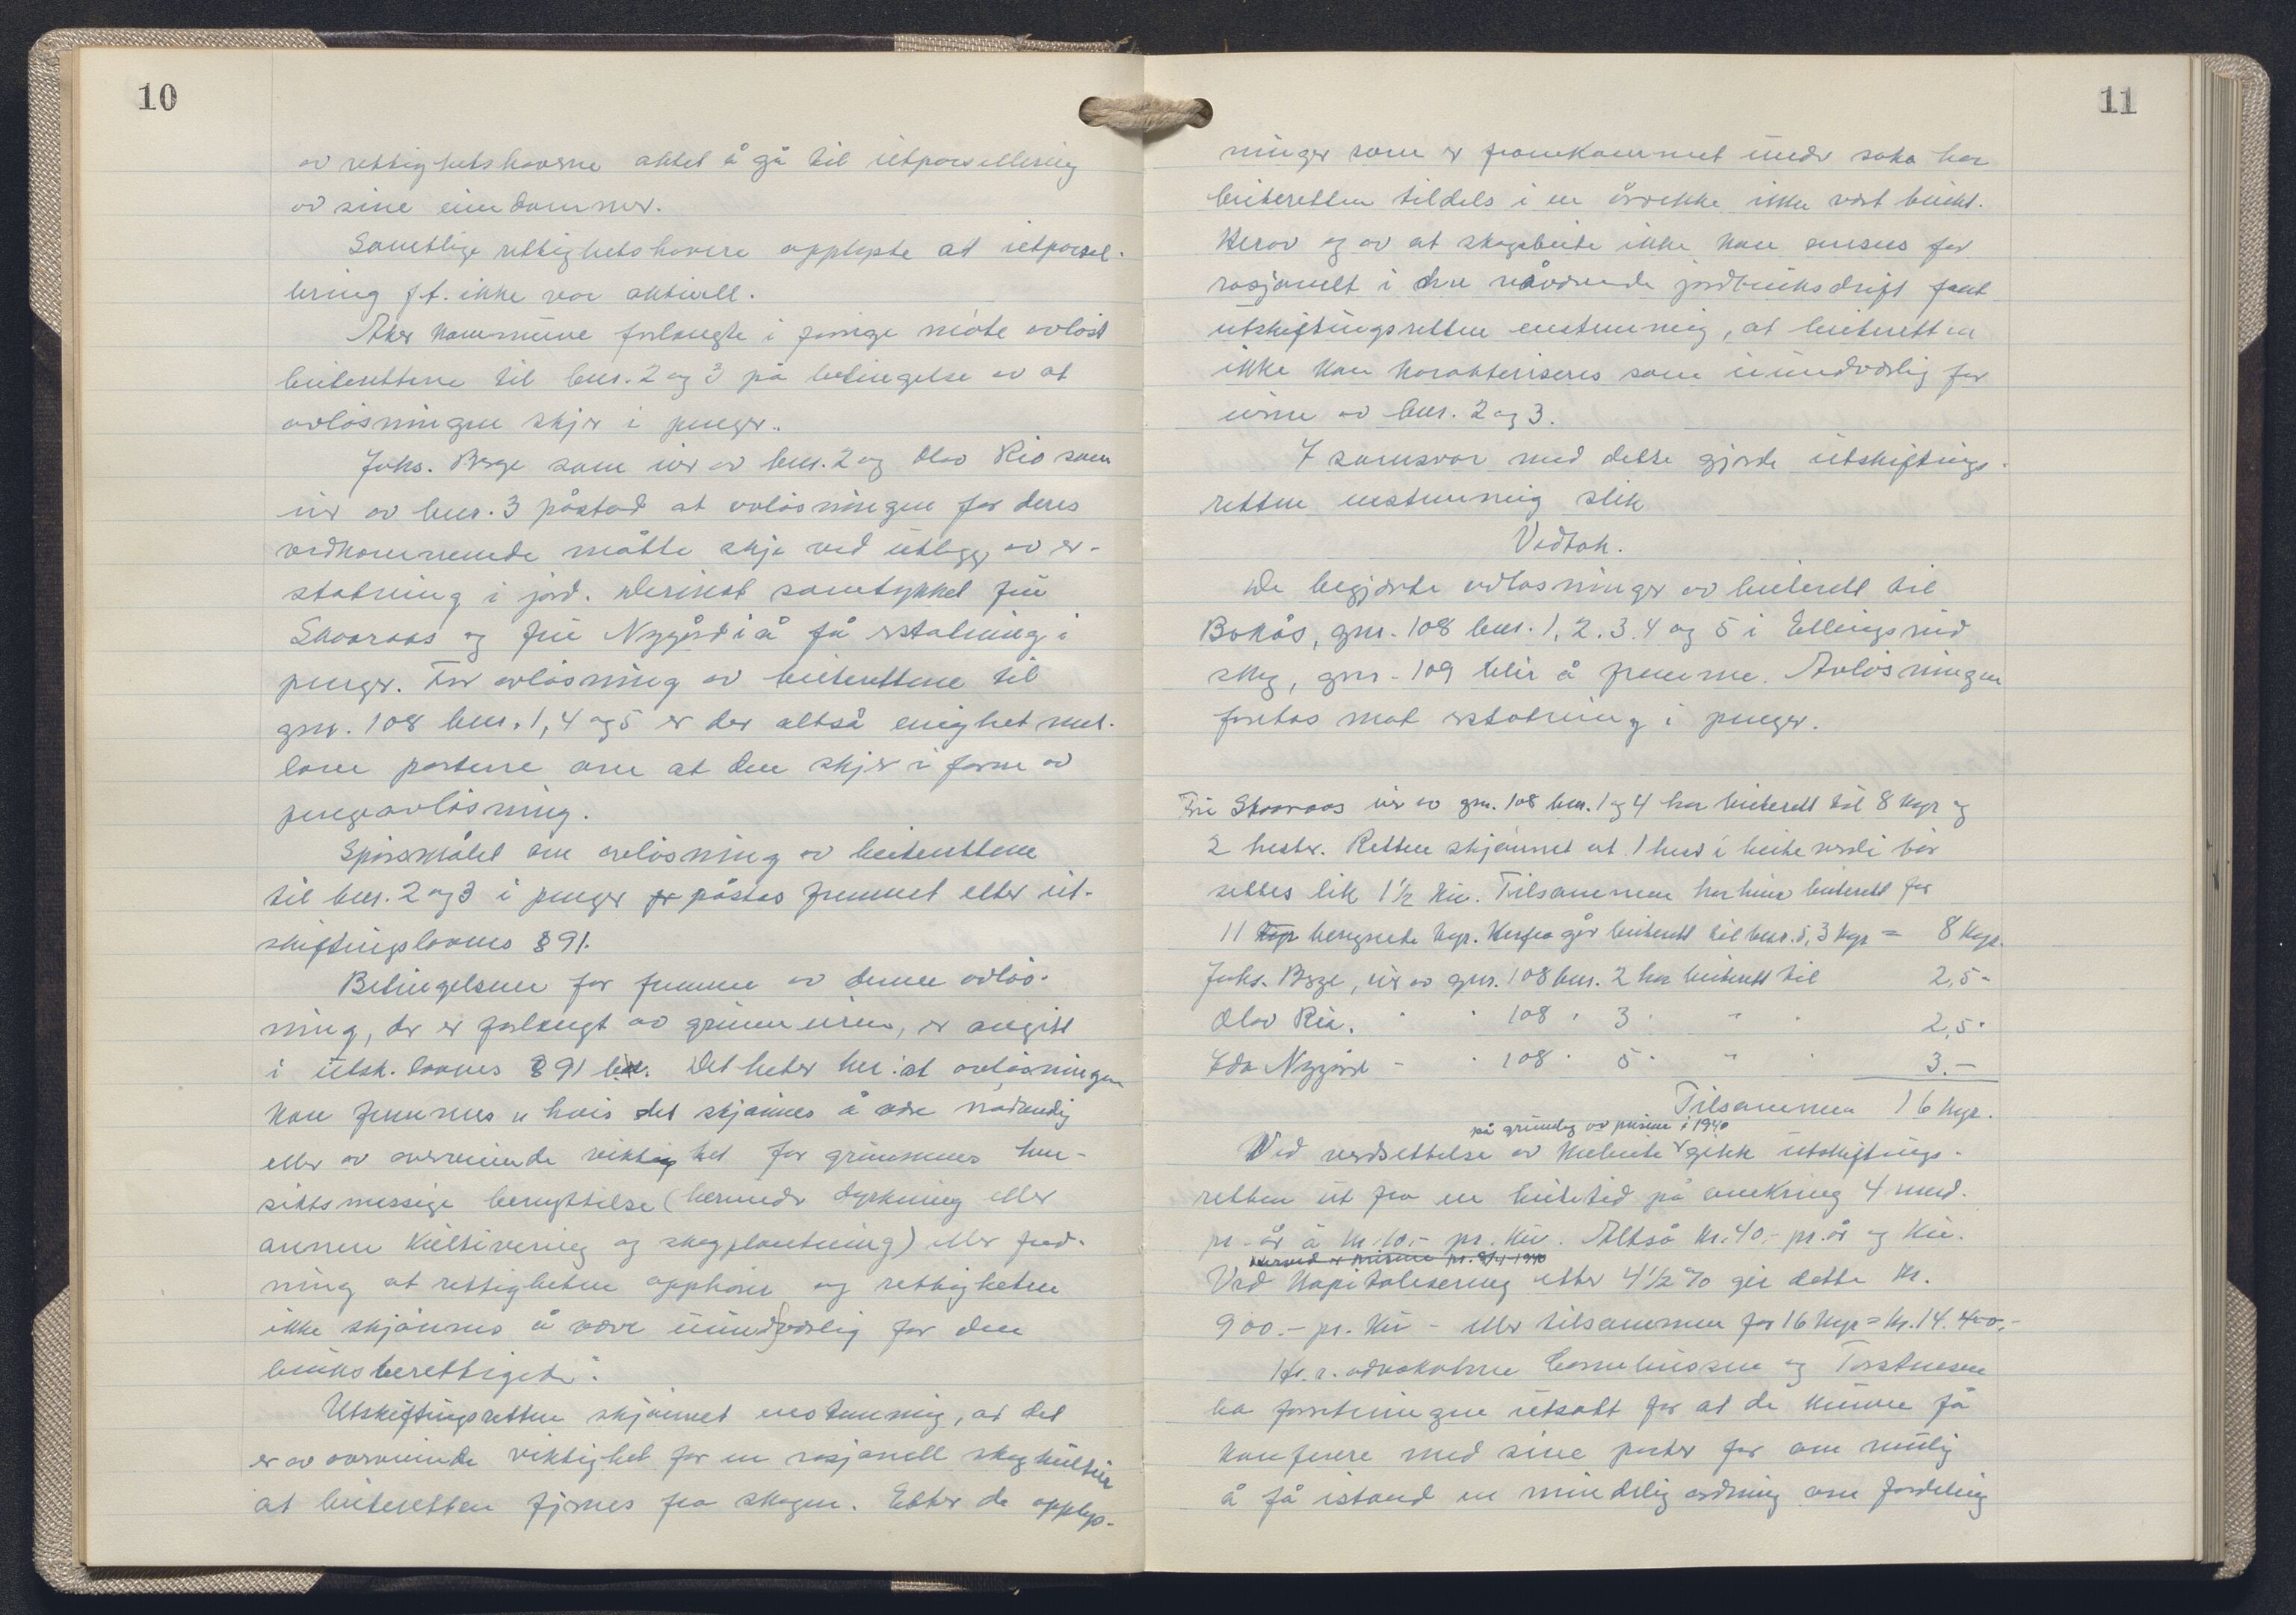 10
av rettighetshaverne aktet å gå til utparsellering
av sine eiendommer.
Samtlige rettighetshavere opplyste at utparsel-
lering f.t. ikke var aktuell.
Aker kommune forlangte i forrige møte avløst
beiterettene til bnr. 2 og 3 på betingelse av at
avløsningen skjer i penger.
Johs. Berge som eier av bnr. 2 og Olav Rio som
eier av bnr. 3 påstod at avløsningen for deres
vedkommende måtte skje ved utlegg av er-
statning i jord. Derimot samtykket fru
Skaaraas og fru Nygård i å få erstatning i
penger. For avløsning av beiterettene til
gnr. 108 bnr. 1, 4 og 5 er der altså enighet mel-
lom partene om at den skjer i form av
pengeavløsning.
Spørsmålet om avløsning av beiterettene
til bnr. 2 og 3 i penger påstås fremmet etter ut-
skiftingslovens § 91.
Betingelsene for fremme av denne avløs-
ning, der er forlangt av grunneieren, er angitt
i utsk. lovens § 91 Det heter her: at avløsningen
kan fremmes "hvis det skjønnes å være nødvendig
eller av overveiende viktighet for grunnens hen-
siktsmessige benyttelse (herunder dyrkning eller
annen kultivering og skogplantning) eller fred-
ning at rettigheten opphører og rettigheten
ikke skjønnes å være uundværlig for den
bruksberettigede".
Utskiftingsretten skjønnet enstemmig, at det
er av overveiende viktighet for en rasjonell skogkultur
at beiteretten fjernes fra skogen. Etter de opplys-
11
ninger som er framkommet under saka har
beiteretten tildels i en årrekke ikke vært brukt.
Herav og av at skogsbeite ikke kan ansees for
rasjonelt i den nåværende jordbruksdrift fant
utskiftingsretten enstemmig, at beiteretten
ikke kan karakteriseres som uundværlig for
eierne av bnr. 2 og 3.
I samsvar med dette gjorde utskiftings-
retten enstemmig slik
Vedtak.
De begjærte avløsninger av beiterett til
Bokås, gnr. 108 bnr. 1, 2. 3. 4 og 5 i Ellingsrud
skog, gnr. 109 blir å fremme. Avløsningen
foretas mot erstatning i penger.
Fru Skaaraas eier av gnr. 108 bnr. 1 og 4 har beiterett til 8 kyr og
2 hester. Retten skjønnet at 1 hest i beiteverdi bør
settes lik 1½ ku. Tilsammen har hun beiterett for
11 beregnede kyr. Herfra går beiterett til bnr. 5, 3 kyr = 8 kyr.
Johs. Berge, eier av gnr. 108 bnr. 2 har beiterett til 2,5 "
Olav Rio. " " 108 " 3 " " " 2,5 "
Eda Nygård " " 108 " 5 " " " 3. -
Tilsammen 16 kyr.
på grunnlag av prisene i 1940
Ved verdsettelse av kubeite gikk utskiftings-
retten ut fra en beitetid på omkring 4 mnd.
pr. år à kr. 10,- pr. ku. Altså kr. 40,- pr. år og ku.
prisene pr. 8/4-1940
Ved kapitalisering etter 4½ % gir dette kr.
900.- pr. ku - eller tilsammen for 16 kyr = kr. 14.400,-
H.r. advokatene Corneliussen og Torstensen
ba forretningen utsatt for at de kunne få
konferere med sine parter for om mulig
å få istand en mindelig ordning om fordeling